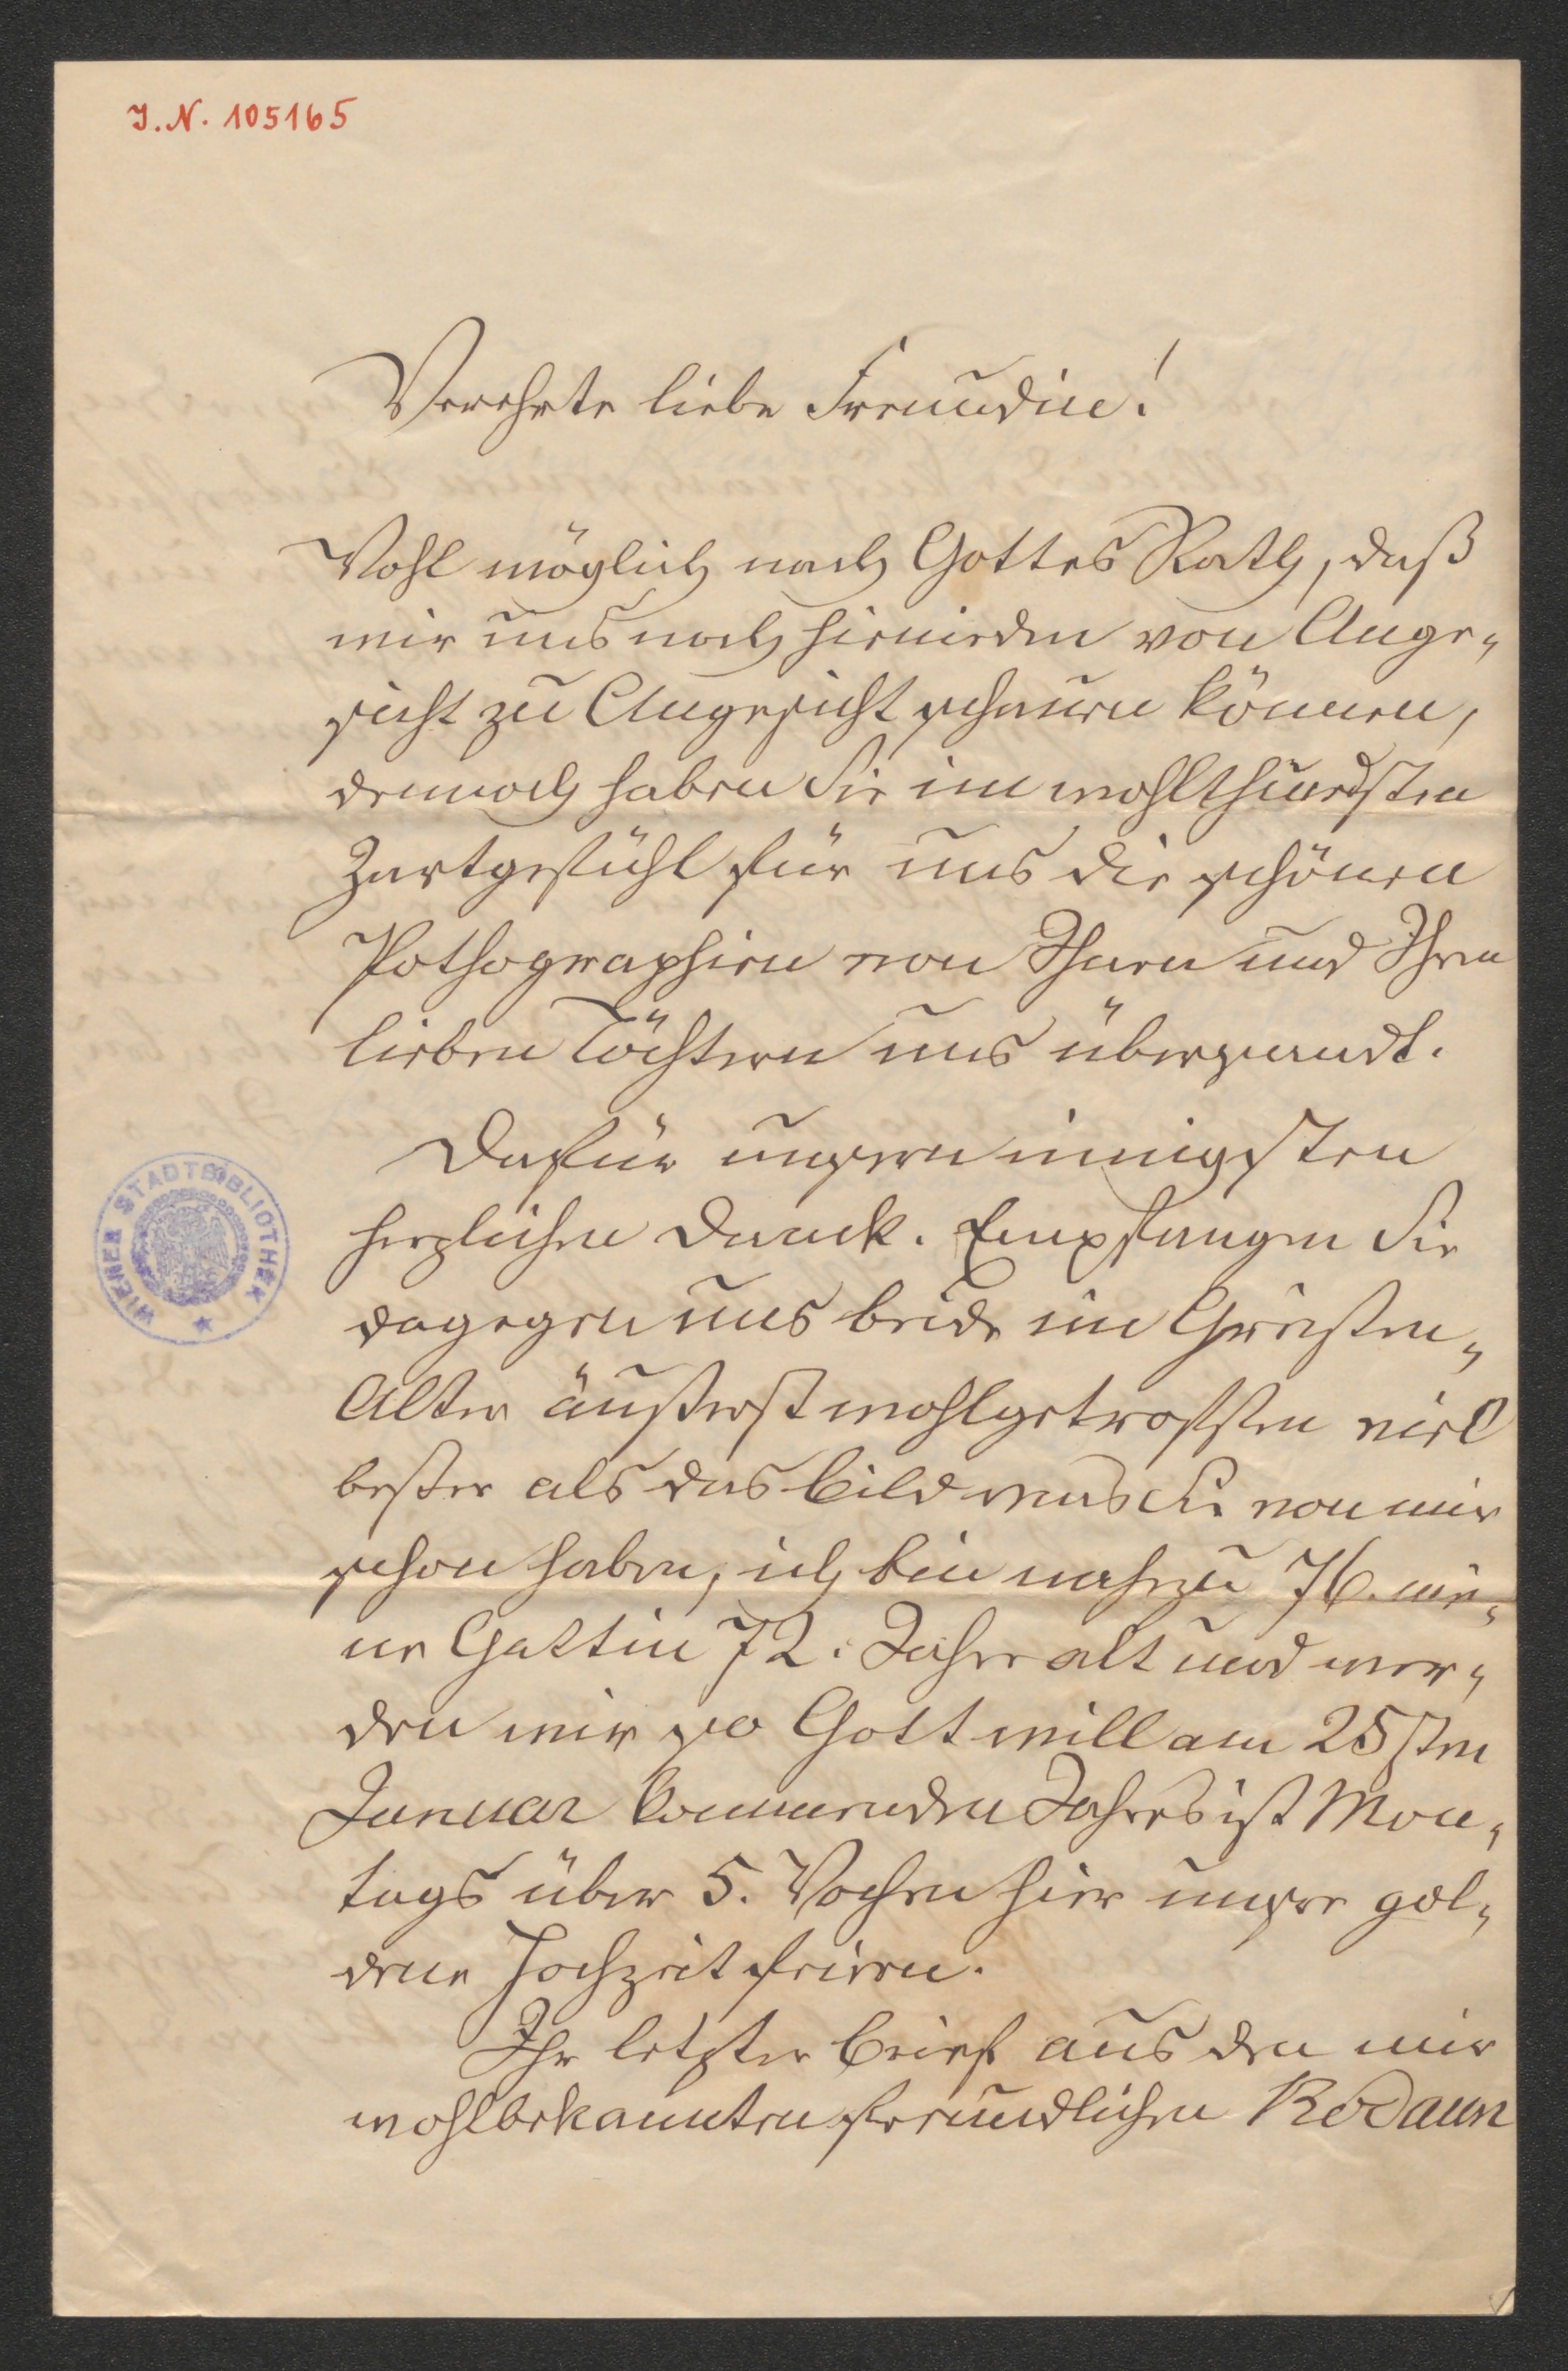 J. N. 105165
Verehrte liebe Freundin!
Wohl möglich nach Gottes Rath, daß
wir uns noch hienieden von Ange-
sicht zu Angesicht schauen können,
dennoch haben Sie im wohlthuendsten
Zartgefühl für uns die schönen
Pothographien von Ihnen und Ihren
lieben Töchtern uns übersandt.
Dafür unsern innigsten
herzlichen Dannk. Empfangen Sie
dagegen uns beide im Greisen-
Alter äußerst wohlgetroffen viel
beßer als das Bild was Sie von mir
schon haben, ich bin nahezu 76. mei-
ne Gattin 72. Jahre alt und wer-
den wir so Gott will am 25sten
Januar kommenden Jahres ist Mon-
tags über 5. Wochen hier unsre gol-
dene Hochzeit feiern.
Ihr letzter Brief aus den mir
wohlbekannten freundlichen Rodaun
WIENER STADTBIBLIOTHEK